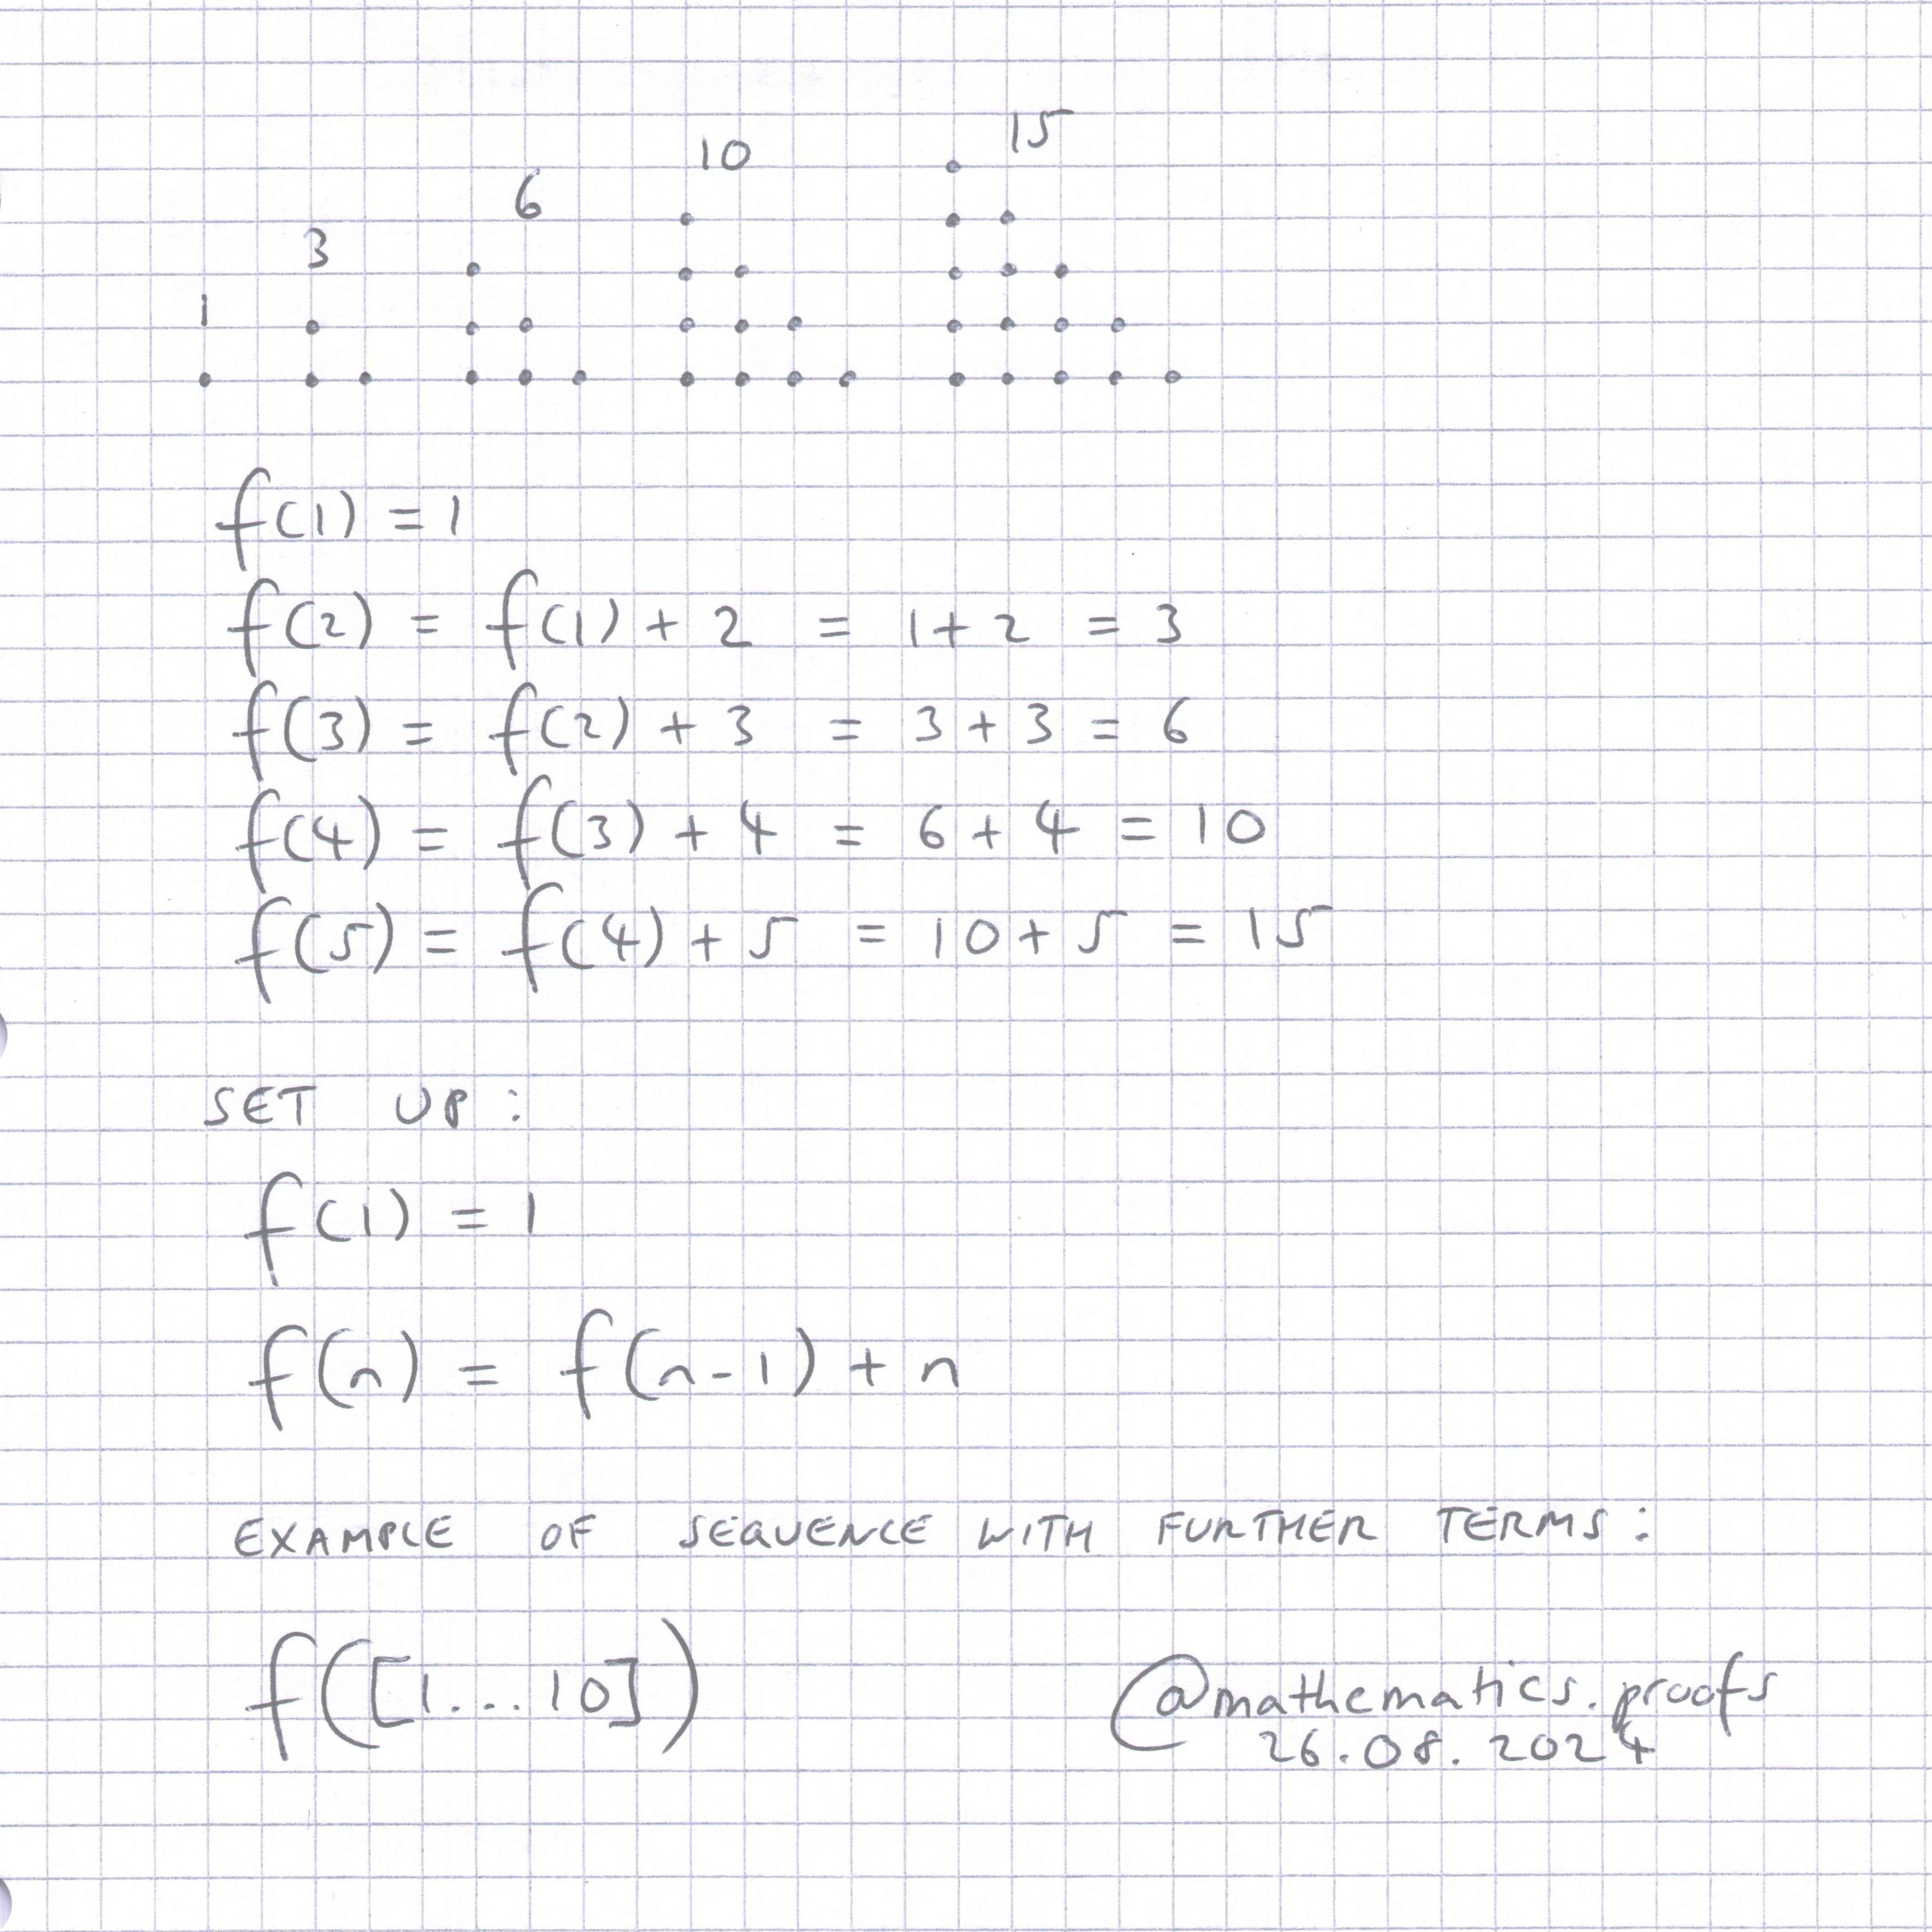 1 3 6 10 15
f(1) = 1
f(2) = f(1) + 2 = 1 + 2 = 3
f(3) = f(2) + 3 = 3 + 3 = 6
f(4) = f(3) + 4 = 6 + 4 = 10
f(5) = f(4) + 5 = 10 + 5 = 15
SET UP:
f(1) = 1
f(n) = f(n-1) + n
EXAMPLE OF SEQUENCE WITH FURTHER TERMS:
f([1...10])
@mathematics.proofs
26.08.2024